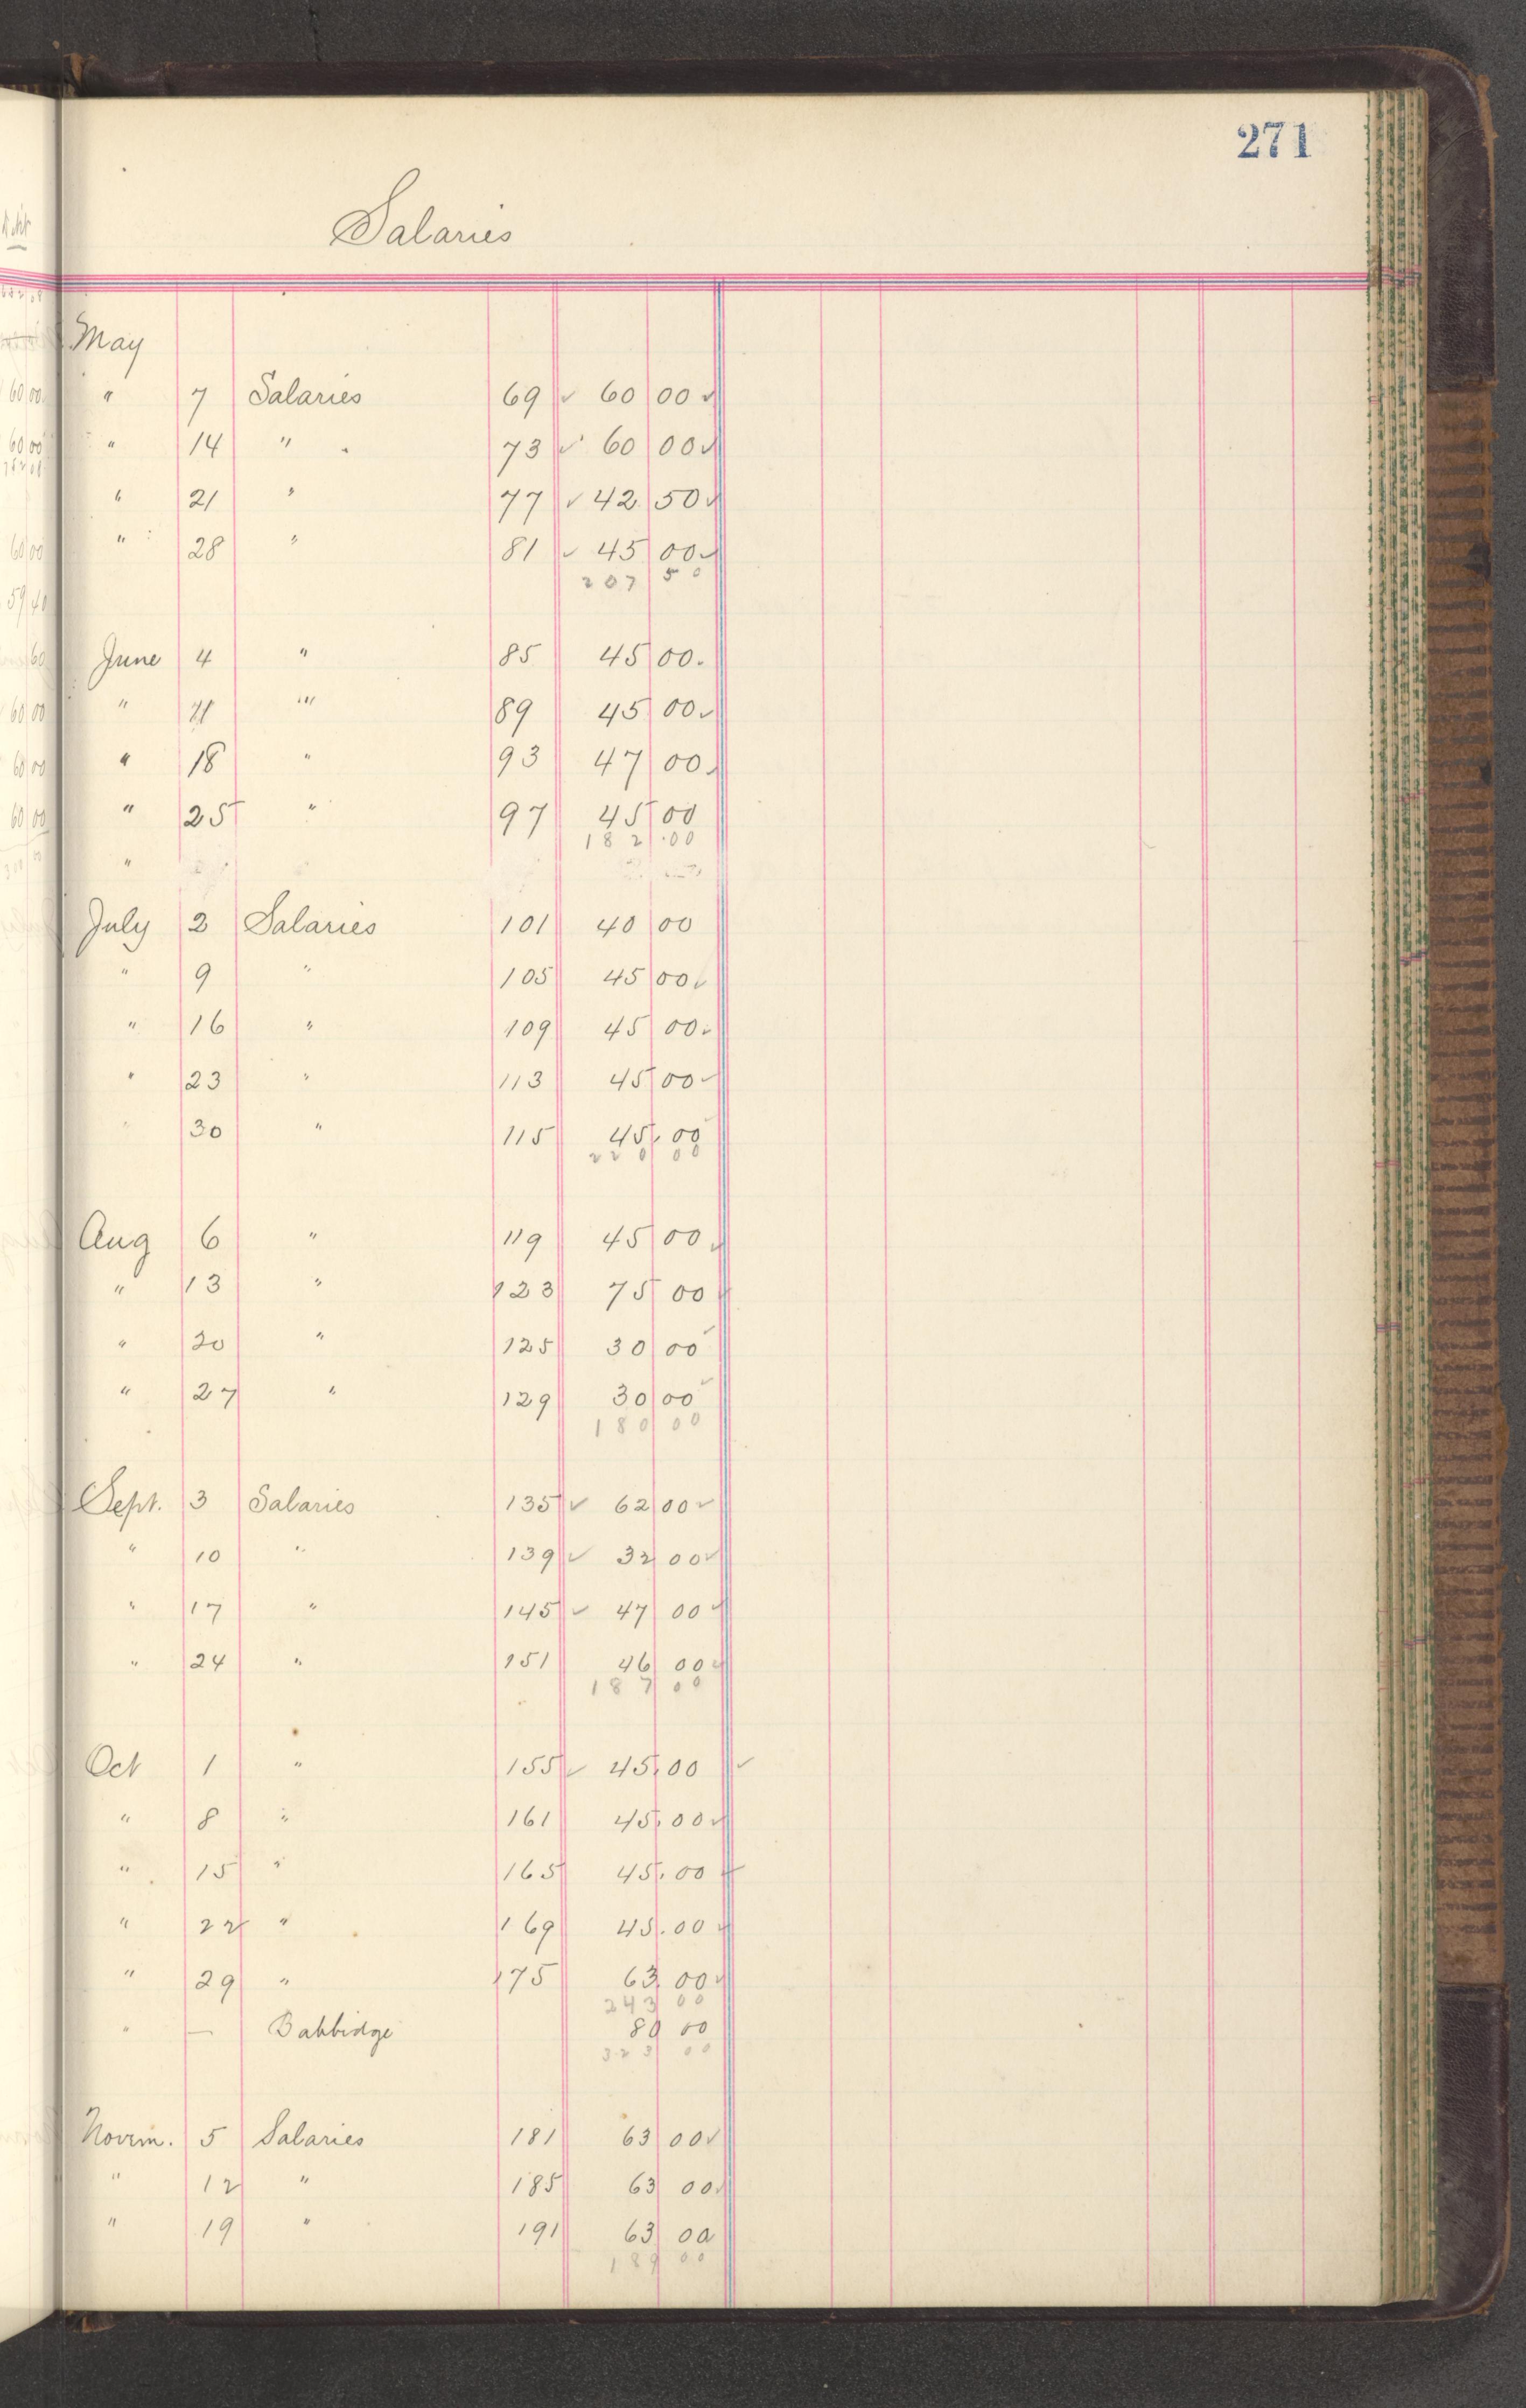 271
Salaries
May
" 7 Salaries 69 ✓ 60 00 ✓
" 14 " 73 ✓ 60 00 ✓
" 21 " 77 ✓ 42 50 ✓
" 28 " 81 ✓ 45 00 ✓
207 50
June 4 " 85 45 00
" 11 " 89 45 00 ✓
" 18 " 93 47 00 ✓
" 25 " 97 45 00
182 00
"
July 2 Salaries 101 40 00
" 9 " 105 45 00 ✓
" 16 " 109 45 00 ✓
" 23 " 113 45 00 ✓
" 30 " 115 45.00 ✓
220 00
Aug 6 " 119 45 00 ✓
" 13 " 123 75 00 ✓
" 20 " 125 30 00 ✓
" 27 " 129 30 00 ✓
180 00
Sept. 3 Salaries 135 ✓ 62 00 ✓
" 10 " 139 ✓ 32 00 ✓
" 17 " 145 ✓ 47 00 ✓
" 24 " 151 46 00 ✓
187 00
Oct 1 " 155 ✓ 45.00 ✓
" 8 " 161 45.00 ✓
" 15 " 165 45.00 ✓
" 22 " 169 45.00 ✓
" 29 " 175 63.00 ✓
243 00
" — Babbidge 80 00
323 00
Novem. 5 Salaries 181 63 00 ✓
" 12 " 185 63 00 ✓
" 19 " 191 63 00
189 00